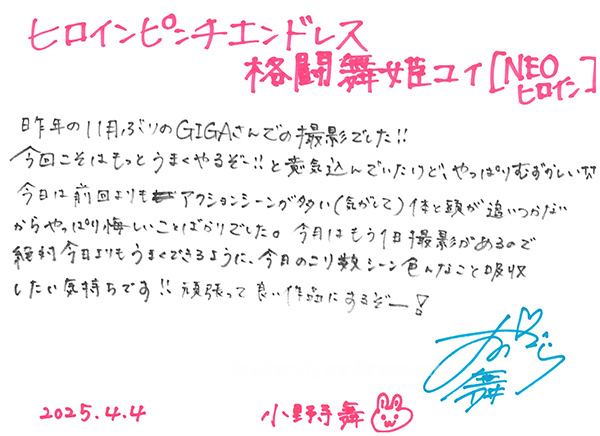 ヒロインピンチエンドレス
格闘舞姫ユイ[NEO
ヒロイン]
昨年の11月ぶりのGIGAさんでの撮影でした!!
今回こそはもっとうまくやるぞー!!と意気込んでいたけど、やっぱりむずかしい
今日は前回よりもアクションシーンが多い(気がして)体と頭が追いつかない
からやっぱり悔しいことばかりでした。今月はもう1日撮影があるので
絶対今日よりもうまくできるように、今日のこり数シーン色んなこと吸収
したい気持ちです!!頑張って良い作品にするぞー!
舞
2025.4.4 小野寺舞